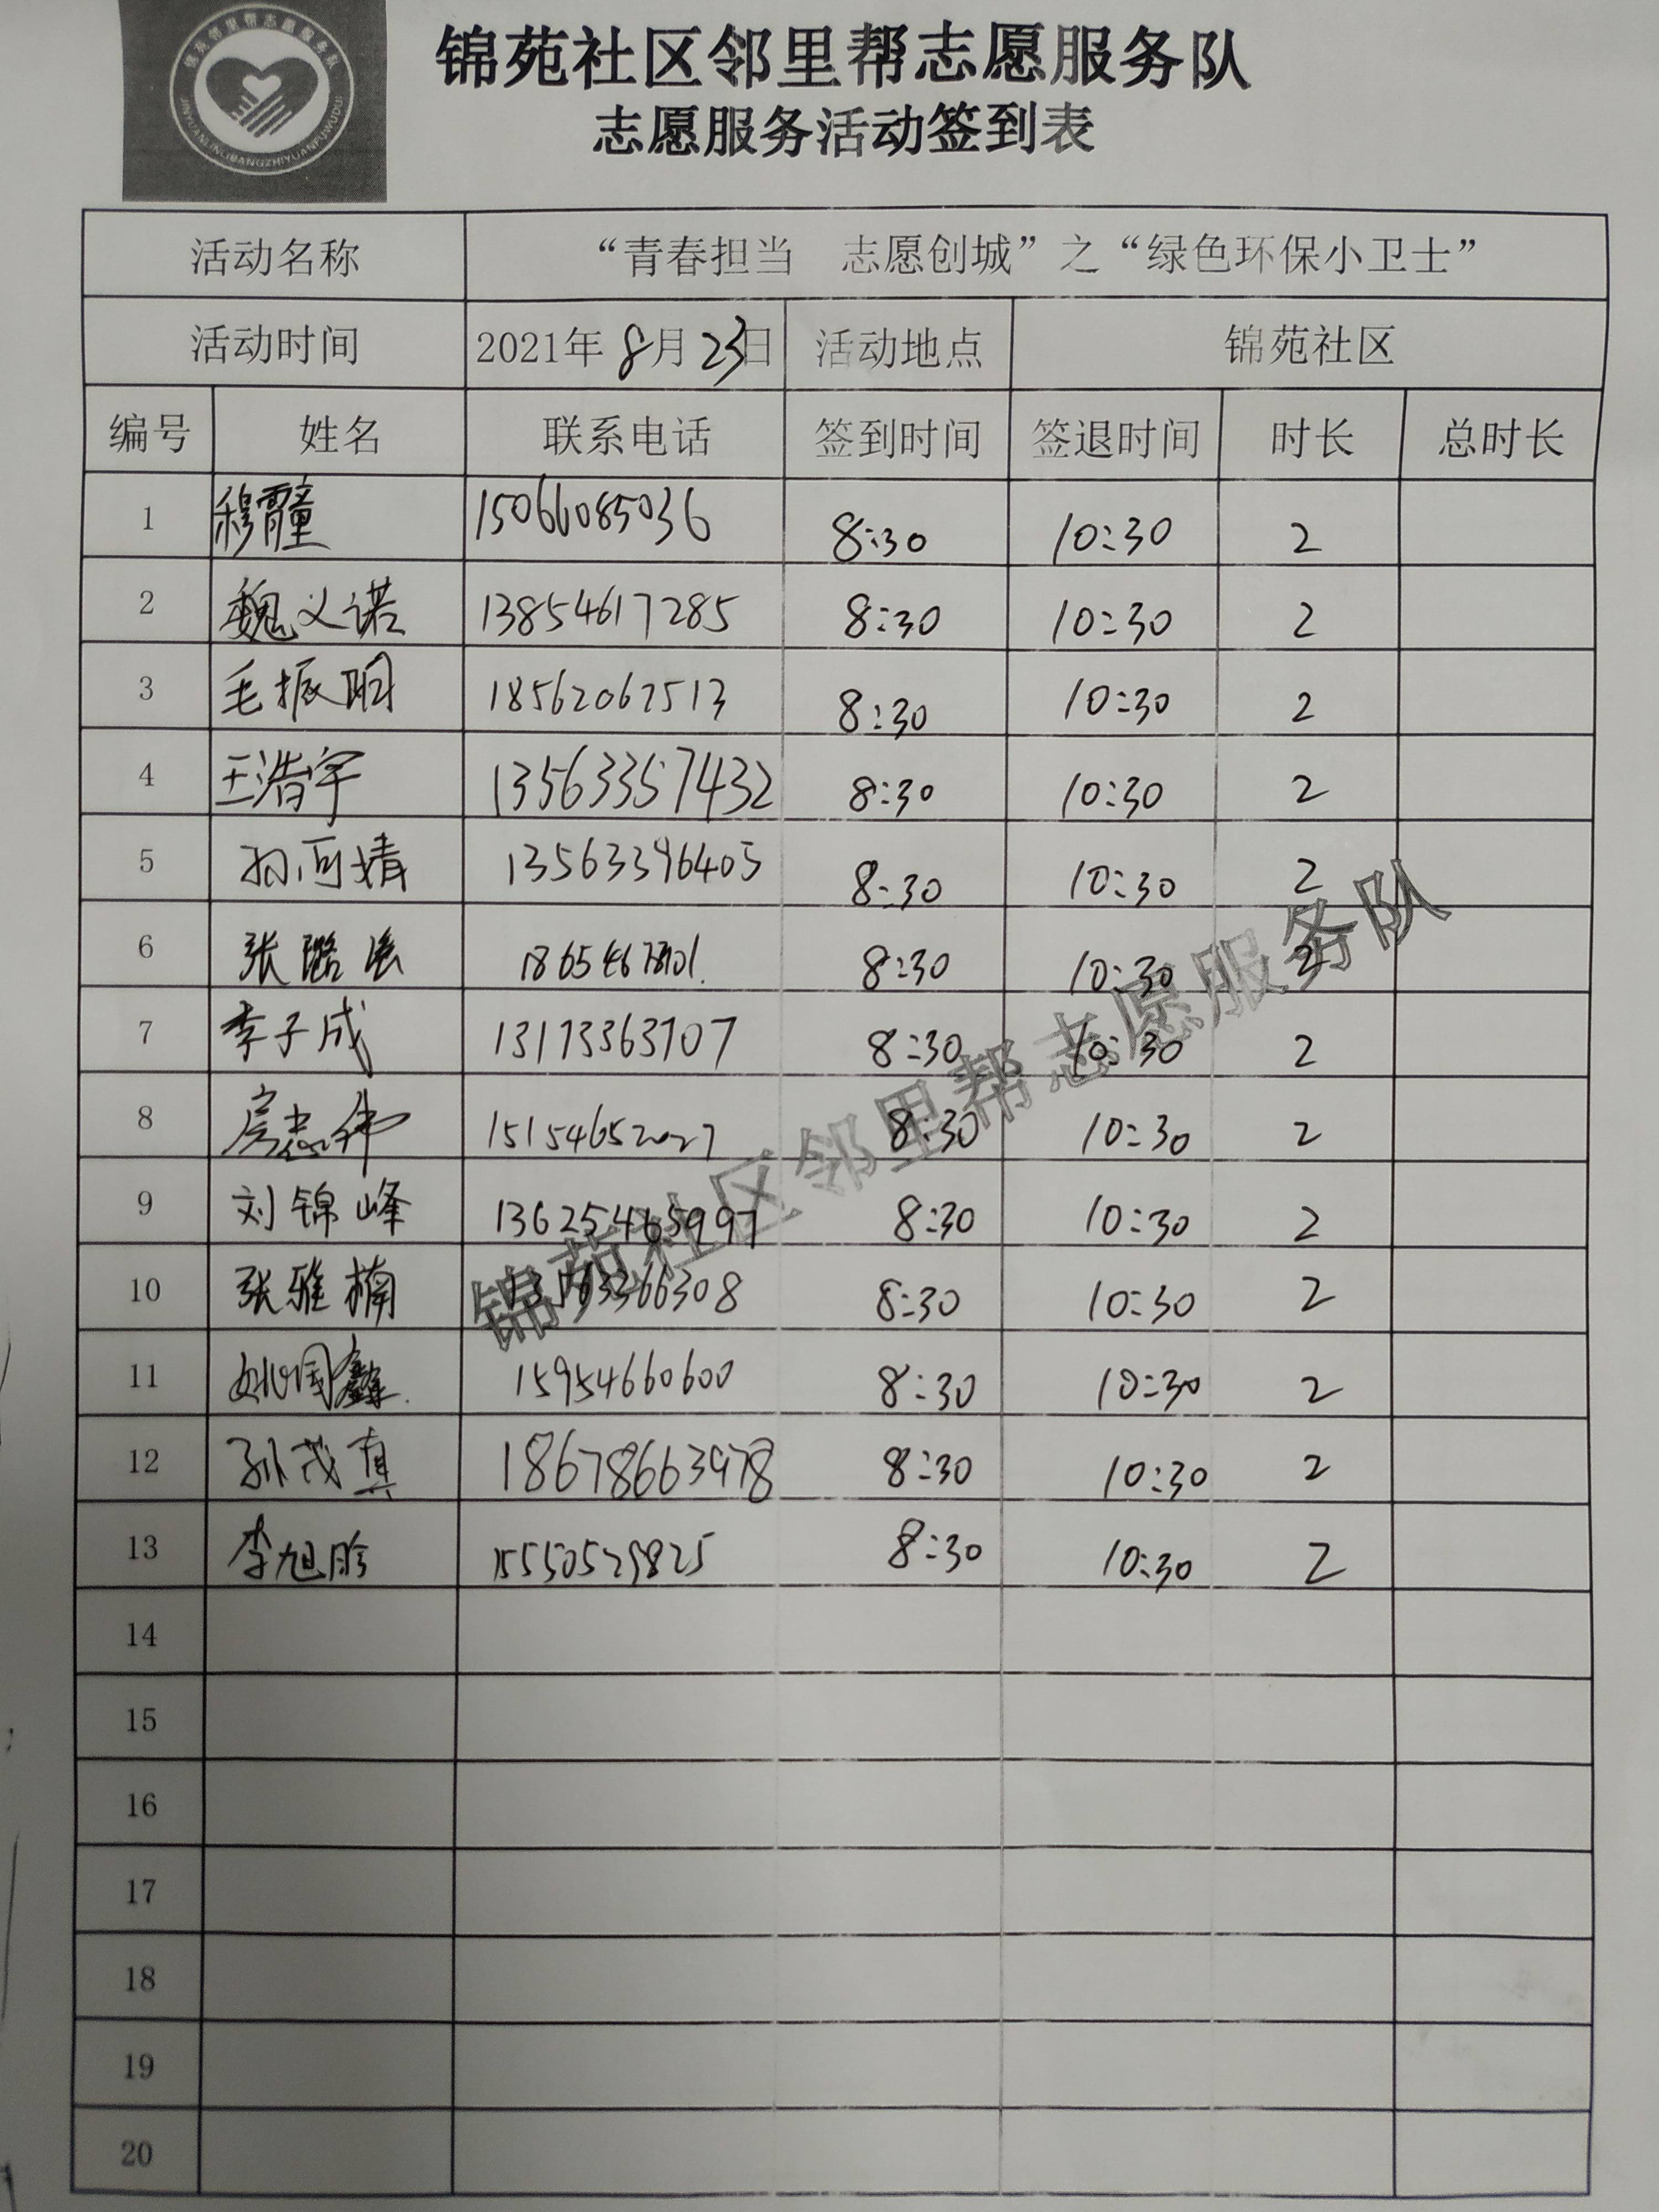 锦苑邻里帮志愿服务队
JINYUANLINLIBANGZHIYUANFUWUDUI
锦苑社区邻里帮志愿服务队
志愿服务活动签到表
活动名称 “青春担当 志愿创城”之“绿色环保小卫士”
活动时间 2021年8月23日 活动地点 锦苑社区
编号 姓名 联系电话 签到时间 签退时间 时长 总时长
1 穆霄童 15066085036 8:30 10:30 2
2 魏义诺 13854617285 8:30 10:30 2
3 毛振明 18562067513 8:30 10:30 2
4 王浩宇 13563357432 8:30 10:30 2
5 孙可婧 13563396405 8:30 10:30 2
6 张璐 8:30 10:30 2
7 李子成 8:30 10:30 2
8 房志伟 15154652027 8:30 10:30 2
9 刘锦峰 13625465997 8:30 10:30 2
10 张雅楠 8:30 10:30 2
11 姚国鑫 15954660600 8:30 10:30 2
12 孙茂真 18678663978 8:30 10:30 2
13 李旭 15550529825 8:30 10:30 2
14
15
16
17
18
19
20
锦苑社区邻里帮志愿服务队